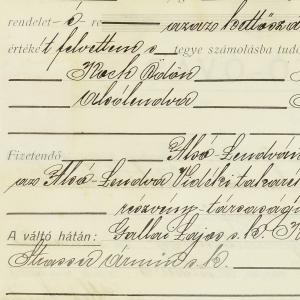 rendelet – ó – re azaz kettősz
értéket felvettem s tegye számolásba tud
Koch Ödön
Alsólendva
Fizetendő Alsó-Lendván
az Alsó-Lendva Vidéki takaré
részvény-társaság
A váltó hátán: Gallai Lajos s.k. K
Strasser Ármin s.k.